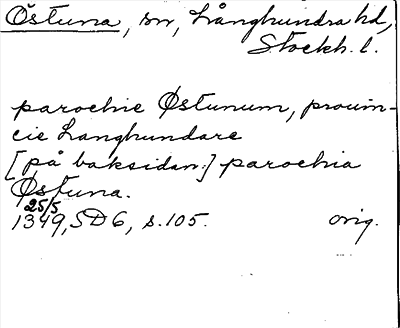 Östuna, sn, Långhundra hd,
Stockh. l.
parochie Østunum, provin-
cie Langhundare
[på baksidan:] parochia
Østuna.
25/5
1349, SD 6, s. 105. orig.